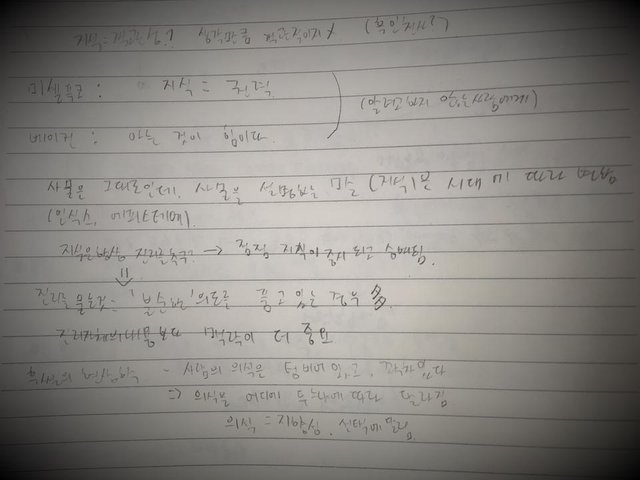 지식=객관성? 생각만큼 객관적이지 X (흑인천사?)
미셸푸코 : 지식 = 권력
(알려고하지 않는사람에게)
베이컨 : 아는 것이 힘이다.
사물은 그대로인데, 사물을 설명하는 말 (지식)은 시대에 따라 변함
(인식소, 에피스테메).
지식은항상 진리를추구? → 점점 지식이 중시 되고 숭배됨.
진리를 묻는것 = '불순한' 의도를 품고 있는 경우 多.
진리자체의내용보다 맥락이 더 중요
후설의 현상학 - 사람의 의식은 텅비어 있고, 꽉차있다
=> 의식을 어디에 두느냐에따라 달라짐
의식 = 지향성. 선택에